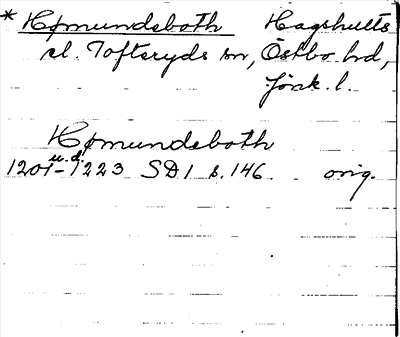 * Hemundsboth Hagshults
el. Tofteryds sn, Östbo hd,
Jönk. l.
Hemundsboth
u. å.
1201-1223 SD1 s. 146 orig.